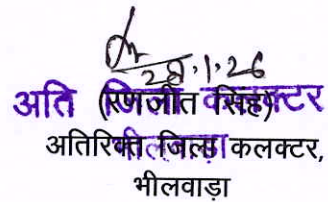 28.1.26
अति जिला कलक्टर
(रणजीत सिंह)
भीलवाड़ा
अतिरिक्त जिला कलक्टर,
भीलवाड़ा